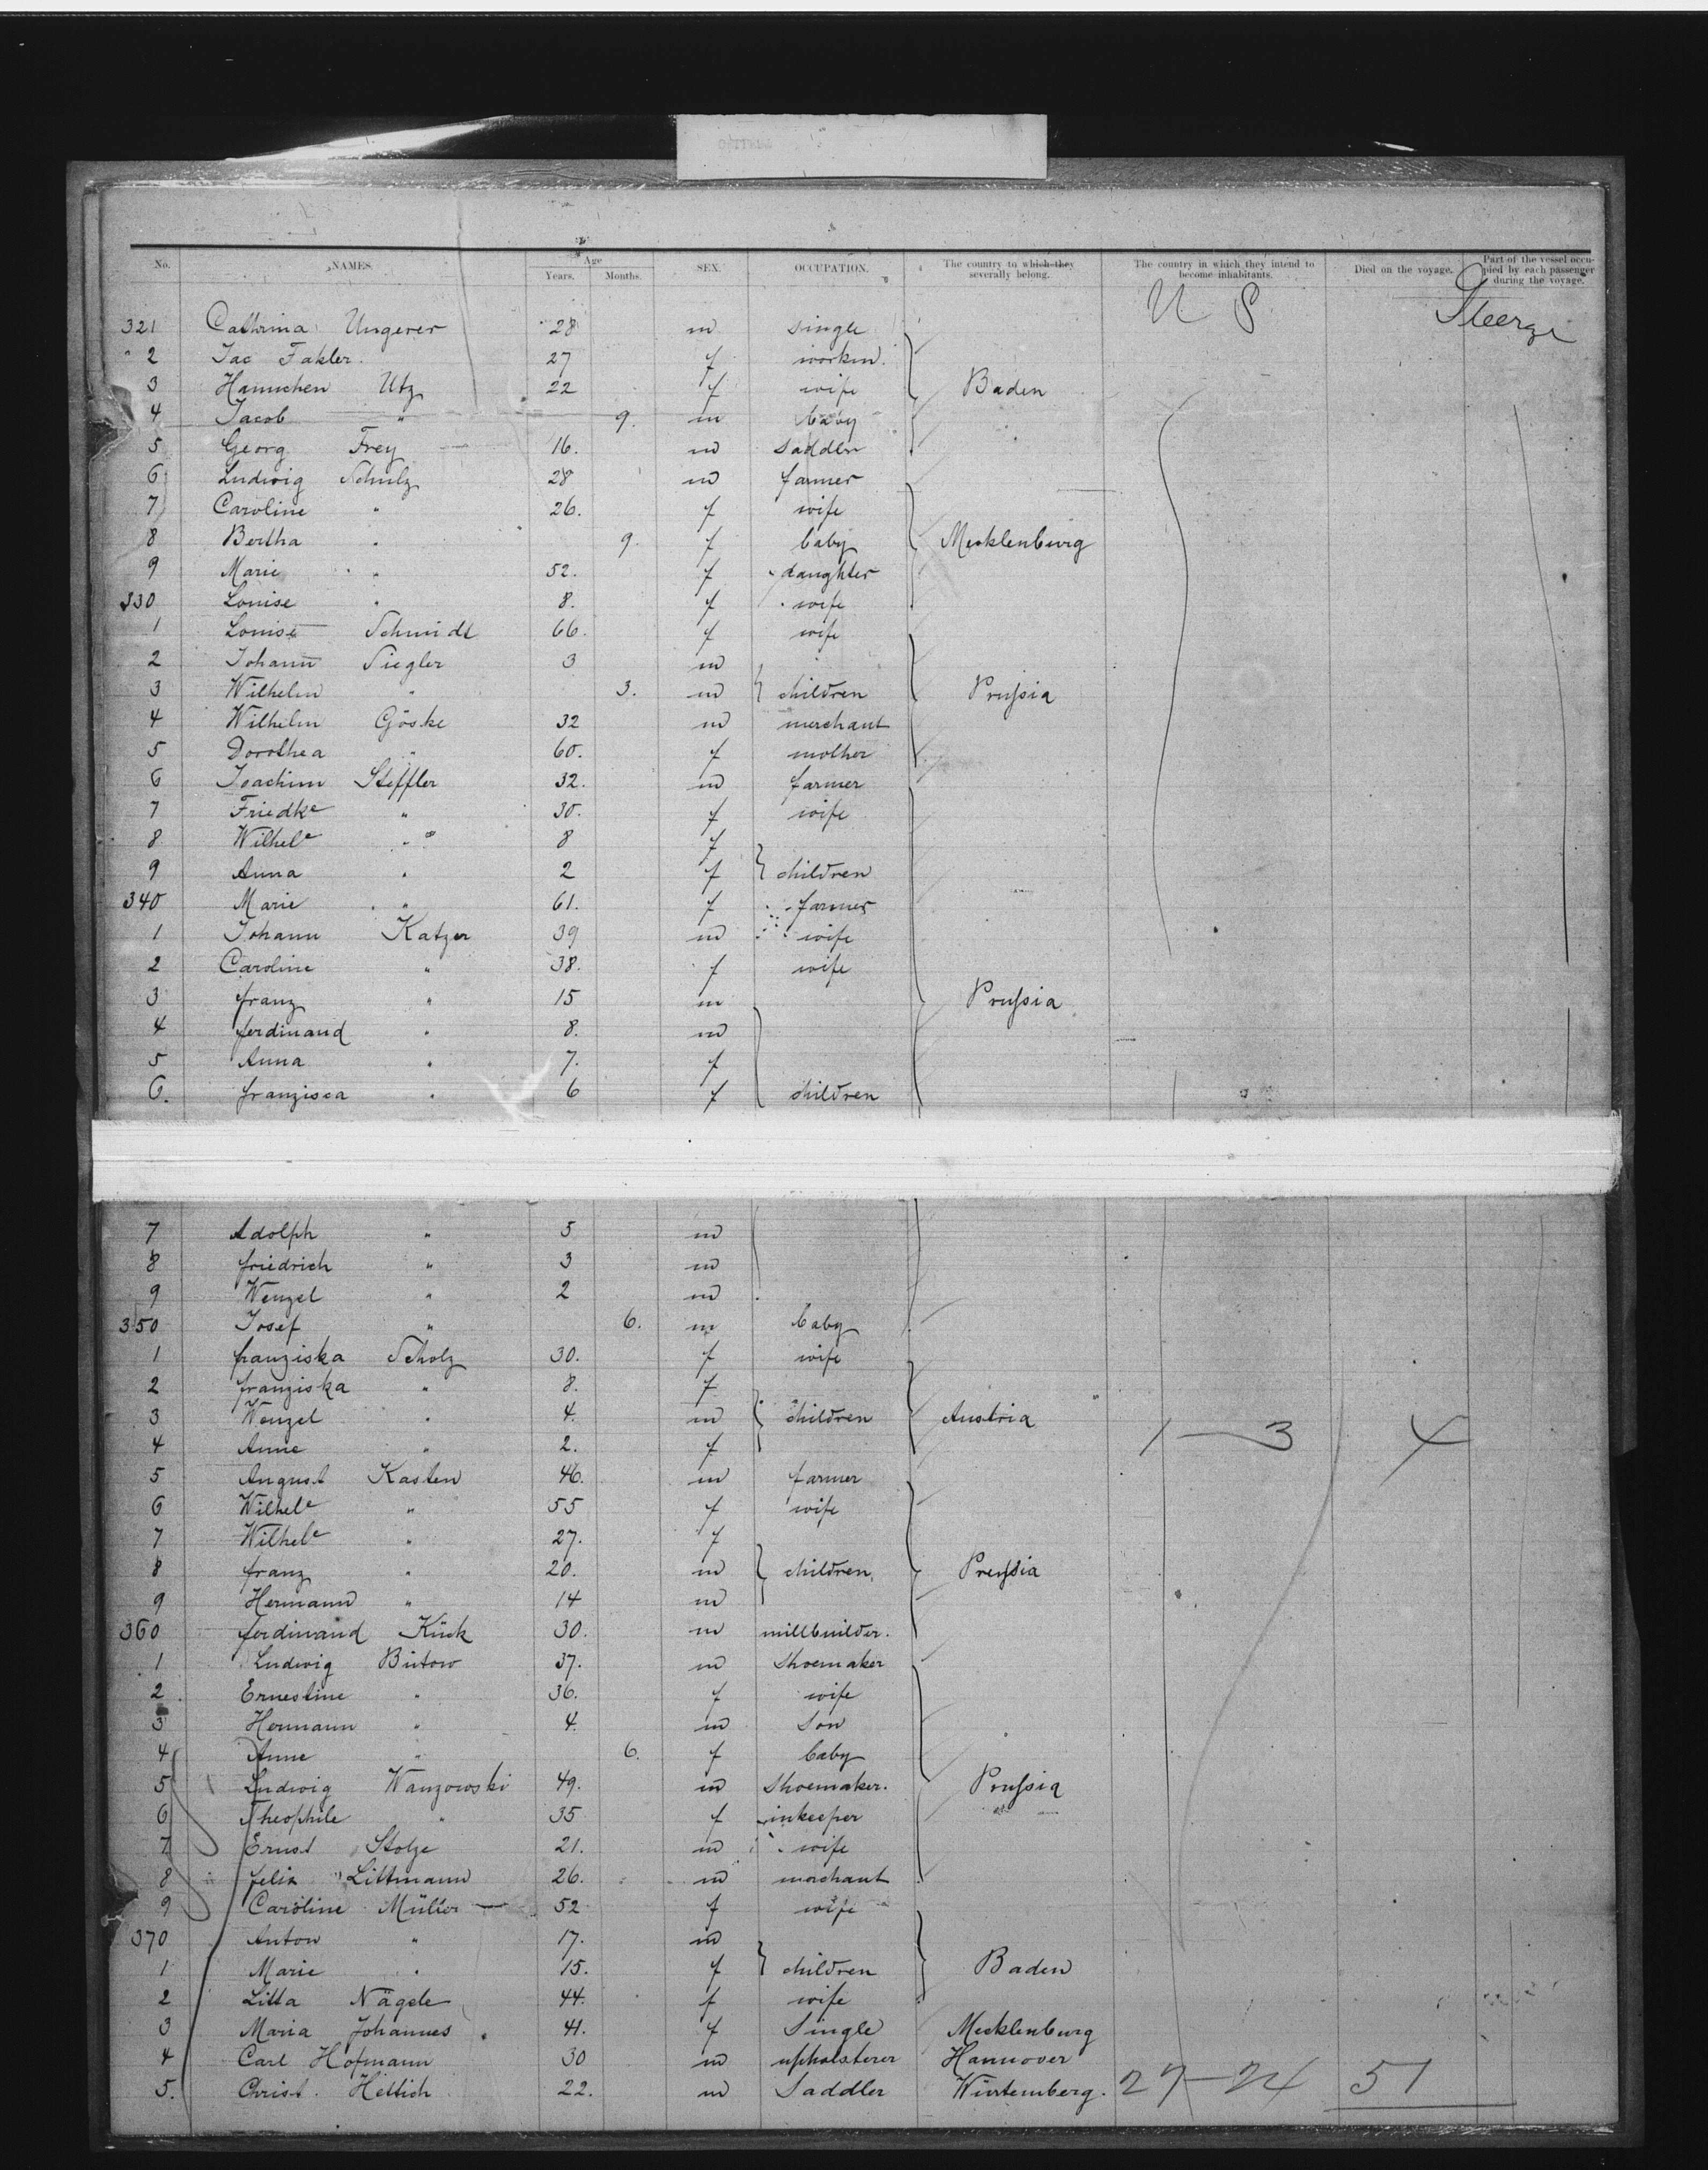 No. NAMES. Age Years. Months. SEX. OCCUPATION. The country to which they severally belong. The country in which they intend to become inhabitants. Died on the voyage. Part of the vessel occupied by each passenger during the voyage.
U S Steerge
321 Cathrina Ungerer 28 m single
2 Jac Fakler 27 f workm.
3 Hannchen Utz 22 f wife Baden
4 Jacob " 9. m baby
5 Georg Frey 16. m Saddler
6 Ludwig Schulz 28 m farmer
7 Caroline " 26. f wife
8 Bertha " 9. f baby Mecklenburg
9 Marie " 52. f daughter
330 Louise " 8. f wife
1 Louise Schmidt 66. f wife
2 Johann Siegler 3 m
3 Wilhelm " 3. m children Prussia
4 Wilhelm Göske 32 m merchant
5 Dorothea " 60. f mother
6 Joachim Steffler 32. m farmer
7 Friedke " 30. f wife
8 Wilhele " 8 f
9 Anna " 2 f children
340 Marie " 61. f farmer
1 Johann Katzer 39 m wife
2 Caroline " 38. f wife
3 franz " 15 m Prussia
4 ferdinand " 8. m
5 Anna " 7. f
6. franzisca " 6 f children
7 Adolph " 5 m
8 friedrich " 3 m
9 Wenzel " 2 m
350 Josef " 6. m baby
1 franziska Scholz 30. f wife
2 franziska " 8. f
3 Wenzel " 4. m children Austria 1 — 3 4
4 Anne " 2. f
5 August Kasten 46. m farmer
6 Wilhele " 55 f wife
7 Wilhele " 27. f
8 franz " 20. m children Prussia
9 Hermann " 14 m
360 ferdinand Kück 30. m millbuilder.
1 Ludwig Bütow 37. m Shoemaker
2 Ernestine " 36. f wife
3 Hermann " 4. m Son
4 Anne " 6. f baby
5 Ludwig Wanzowski 49. m Shoemaker. Prussia
6 Theophile " 35 f inkeeper
7 Ernst Stolze 21. m wife
8 felix Littmann 26. m merchant
9 Caroline Müller 52 f wife
370 Anton " 17. m
1 Marie " 15. f children Baden
2 Litta Nägele 44. f wife
3 Maria Johannes 41. f Single Mecklenburg
4 Carl Hofmann 30 m upholsterer Hannover
5. Christ. Hettich 22. m Saddler Würtemberg. 27 — 24 51